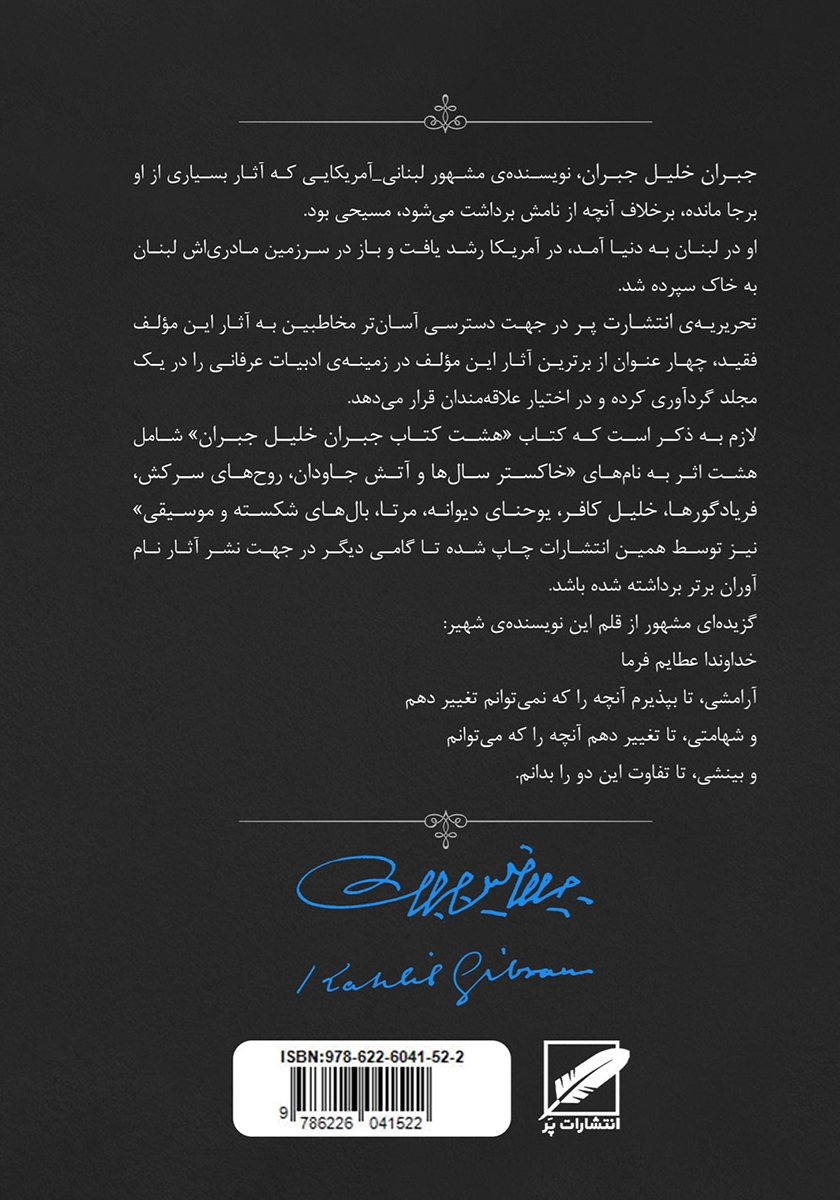 جبران خلیل جبران، نویسنده‌ی مشهور لبنانی_آمریکایی که آثار بسیاری از او
برجا مانده، برخلاف آنچه از نامش برداشت می‌شود، مسیحی بود.
او در لبنان به دنیا آمد، در آمریکا رشد یافت و باز در سرزمین مادری‌اش لبنان
به خاک سپرده شد.
تحریریه‌ی انتشارت پر در جهت دسترسی آسان‌تر مخاطبین به آثار این مؤلف
فقید، چهار عنوان از برترین آثار این مؤلف در زمینه‌ی ادبیات عرفانی را در یک
مجلد گردآوری کرده و در اختیار علاقه‌مندان قرار می‌دهد.
لازم به ذکر است که کتاب «هشت کتاب جبران خلیل جبران» شامل
هشت اثر به نام‌های «خاکستر سال‌ها و آتش جاودان، روح‌های سرکش،
فریادگورها، خلیل کافر، یوحنای دیوانه، مرتا، بال‌های شکسته و موسیقی»
نیز توسط همین انتشارات چاپ شده تا گامی دیگر در جهت نشر آثار نام
آوران برتر برداشته شده باشد.
گزیده‌ای مشهور از قلم این نویسنده‌ی شهیر:
خداوندا عطایم فرما
آرامشی، تا بپذیرم آنچه را که نمی‌توانم تغییر دهم
و شهامتی، تا تغییر دهم آنچه را که می‌توانم
و بینشی، تا تفاوت این دو را بدانم.
جبران خلیل جبران
Kahlil Gibran
ISBN:978-622-6041-52-2
9 786226 041522
انتشارات پَر